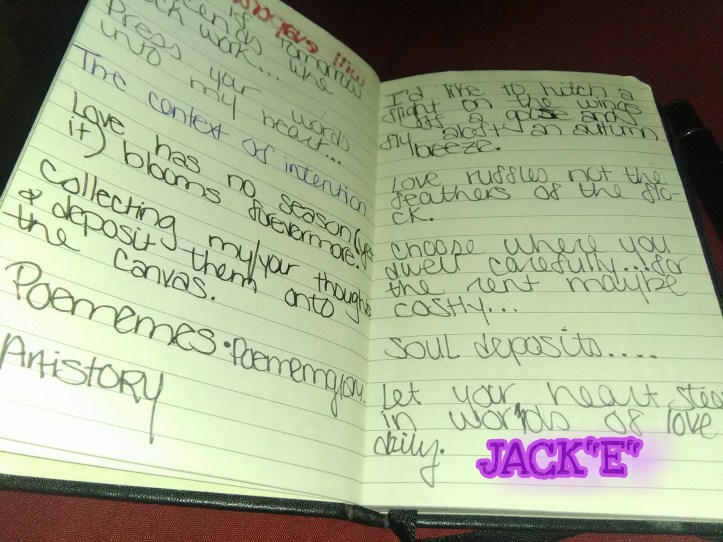 tomorrow
work...
Press your words
into my heart...
The context of intention
Love has no season (yet
it) blooms forevermore.
collecting my/your thoughts
& deposit them onto
the canvas.
Poememes • Poememgion.
Artistory
I'd like to hitch a
flight on the wings
off a goose and
fly aloft an autumn
breeze.
Love ruffles not the
feathers of the flo-
ck.
choose where you
dwell carefully...for
the rent maybe
costly...
Soul deposits....
Let your heart
in words of love
daily.
JACK"E"